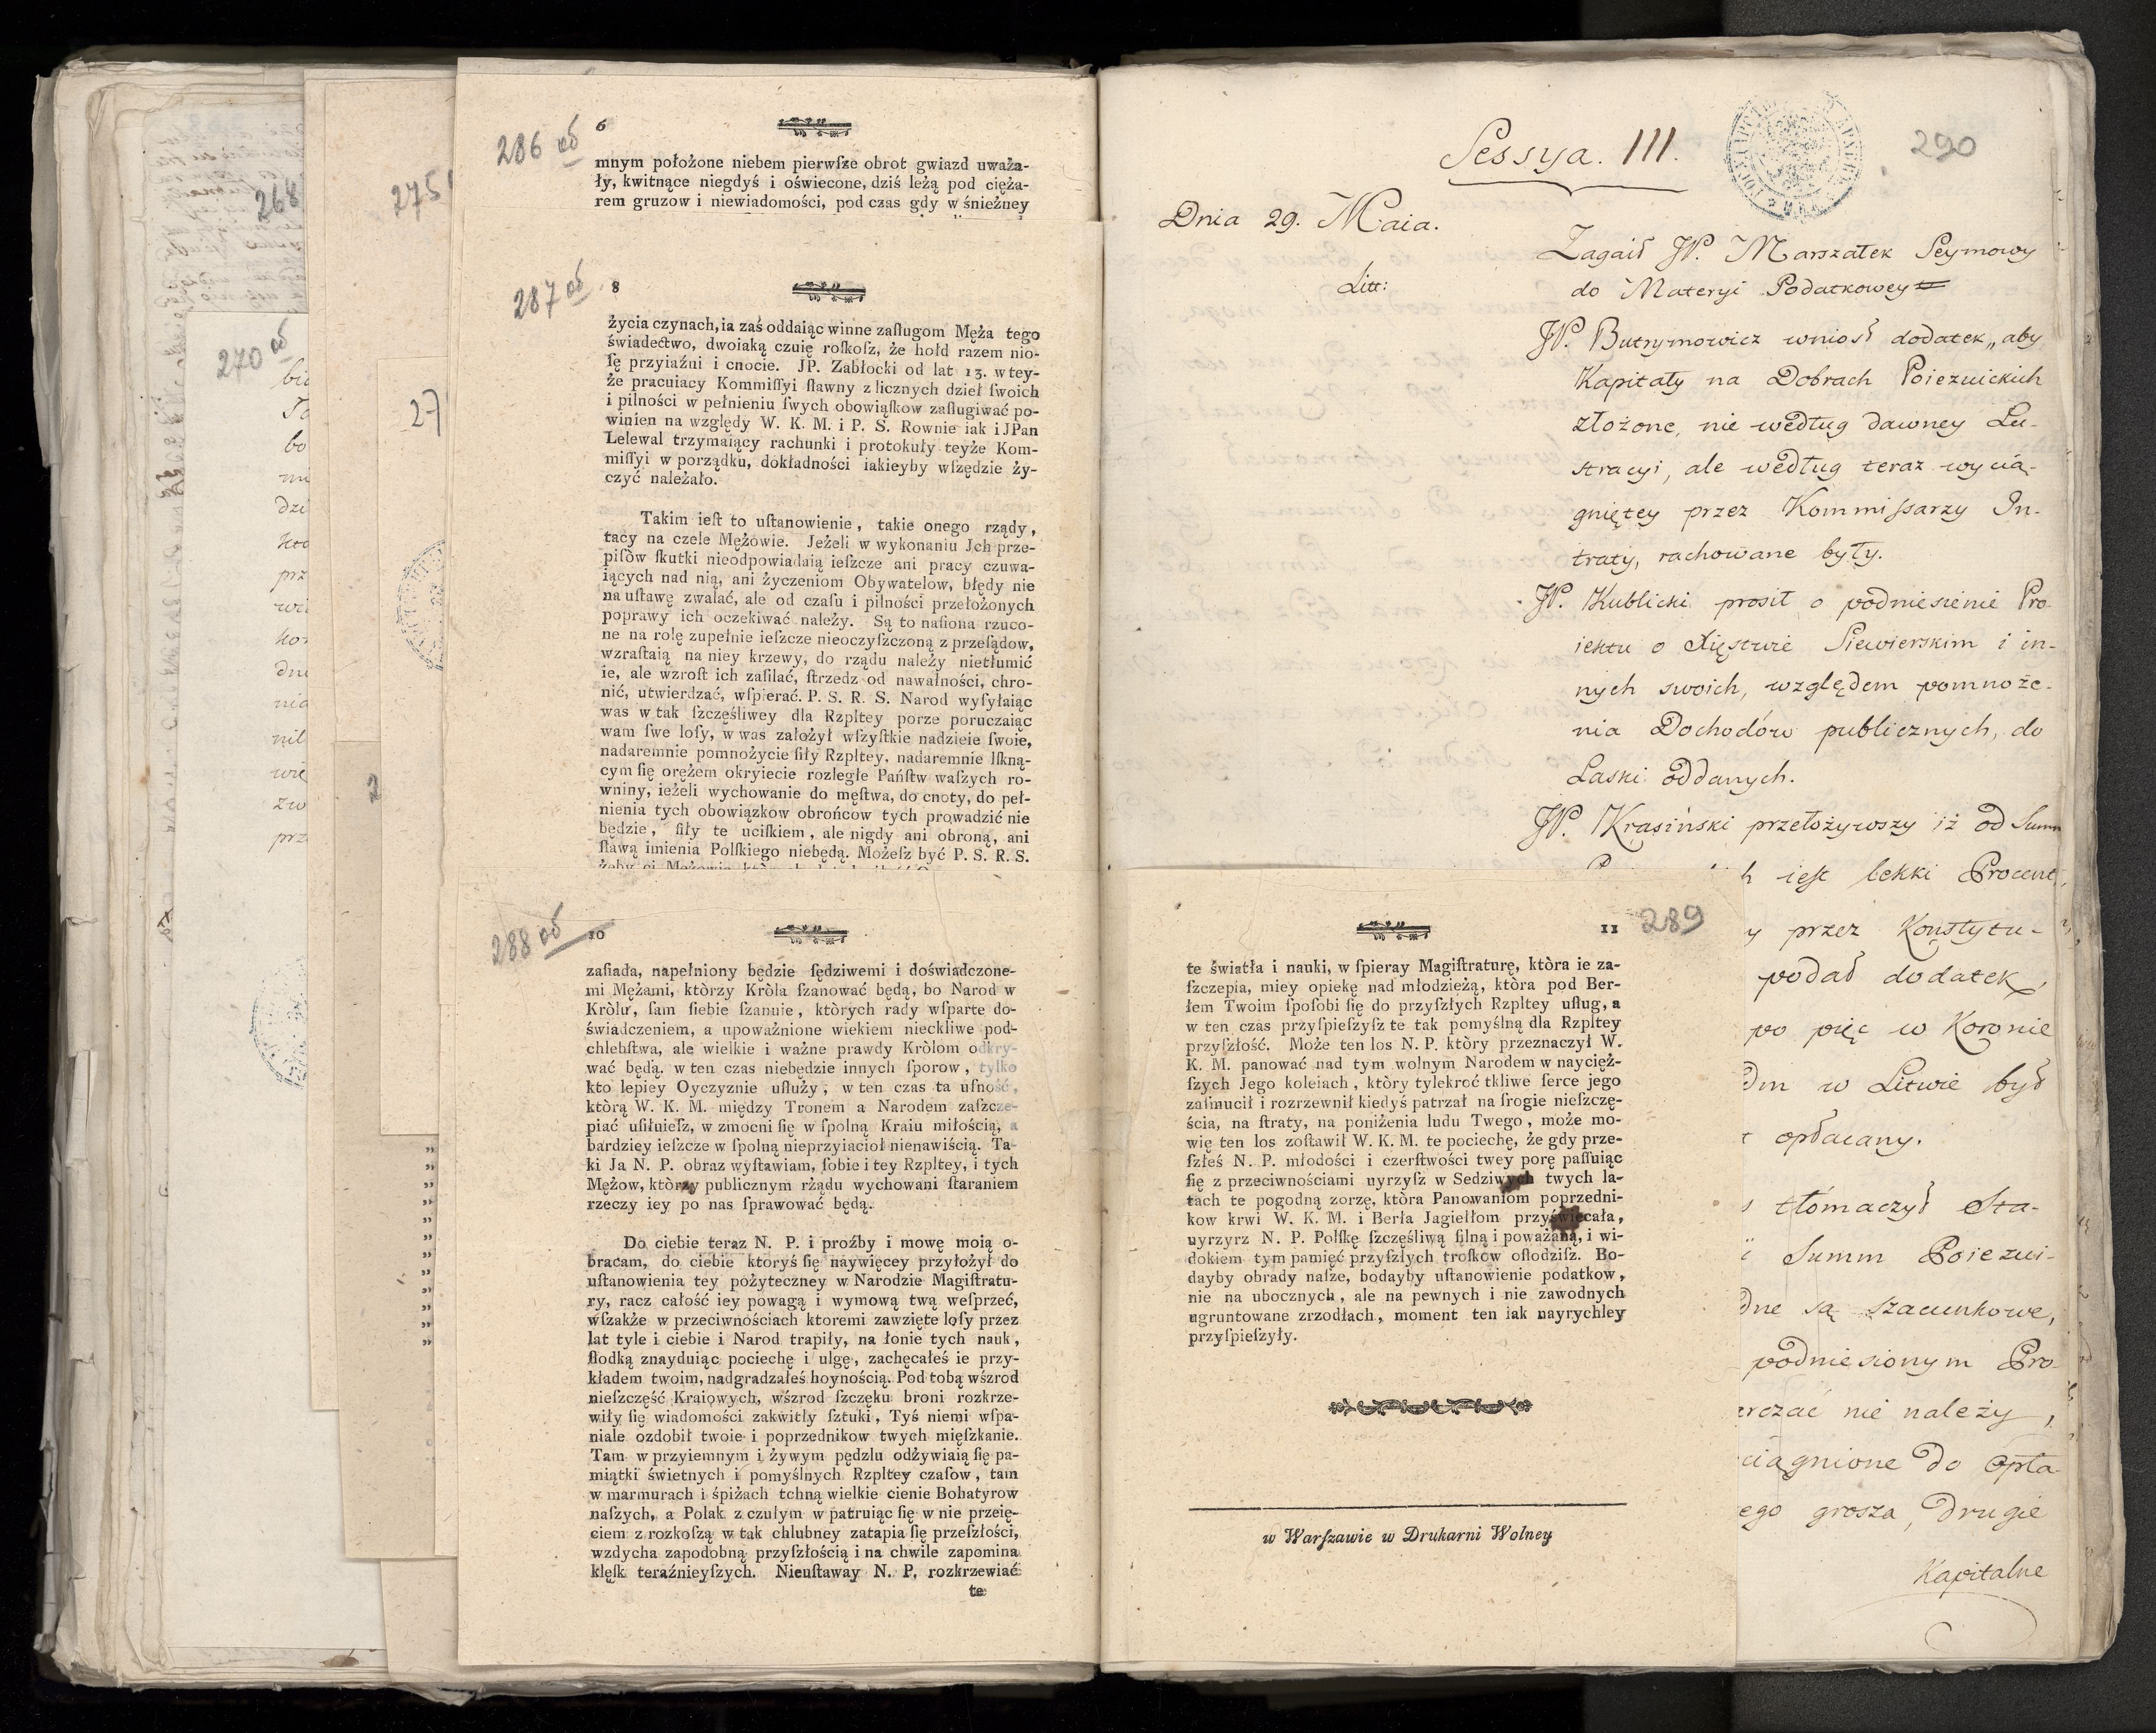 268
270 об
275
27
2
286 об
6
mnym położone niebem pierwſze obrot gwiazd uważa-
ły, kwitnące niegdyś i oświecone, dziś leżą pod cięża-
rem gruzow i niewiadomości, pod czas gdy w śnieżney
287 об
8
życia czynach, ia zaś oddaiąc winne zaſługom Męża tego
świadectwo, dwoiaką czuię roſkoſz, że hołd razem nio-
ſę przyiaźni i cnocie. JP. Zabłocki od lat 13. w tey-
że pracuiacy Kommiſſyi ſławny z licznych dzieł ſwoich
i pilności w pełnieniu ſwych obowiąſkow zaſługiwać po-
winien na względy W. K. M. i P. S. Rownie iak i JPan
Lelewal trzymaiący rachunki i protokuły teyże Kom-
miſſyi w porządku, dokładności iakieyby wſzędzie ży-
czyć należało.
Takim ieſt to uſtanowienie, takie onego rządy,
tacy na czele Mężowie. Jeżeli w wykonaniu Jch prze-
piſòw ſkutki nieodpowiadaią ieſzcze ani pracy czuwa-
iących nad nią, ani życzeniom Obywatelow, błędy nie
na uſtawę zwalać, ale od czaſu i pilności przełożonych
poprawy ich oczekiwać należy. Są to naſiona rzuco-
ne na rolę zupełnie ieſzcze nieoczyſzczoną z przeſądow,
wzraſtaią na niey krzewy, do rządu należy nietłumić
ie, ale wzroſt ich zaſilać, ſtrzedz od nawalności, chro-
nić, utwierdzać, wſpierać. P. S. R. S. Narod wyſyłaiąc
was w tak ſzczęśliwey dla Rzpltey porze poruczaiąc
wam ſwe loſy, w was założył wſzyſtkie nadzieie ſwoie,
nadaremnie pomnożycie ſiły Rzpltey, nadaremnie lſkną-
cym ſię orężem okryiecie rozległe Państw waſzych ro-
wniny, ieżeli wychowanie do męſtwa, do cnoty, do peł-
nienia tych obowiązkow obrońcow tych prowadzić nie
będzie, ſiły te uciſkiem, ale nigdy ani obroną, ani
ſławą imienia Polſkiego niebędą. Możeſz być P. S. R. S.
288 об
10
zaſiada, napełniony będzie ſędziwemi i doświadczone-
mi Mężami, ktòrzy Kròla ſzanować będą, bo Narod w
Kròlu, ſam ſiebie ſzanuie, których rady wſparte do-
świadczeniem, a upoważnione wiekiem nieckliwe pod-
chlebſtwa, ale wielkie i ważne prawdy Kròlom odkry-
wać będą. w ten czas niebędzie innych ſporow, tylko
kto lepiey Oyczyznie uſłuży, w ten czas ta ufność,
ktòrą W. K. M. między Tronem a Narodem zaſzcze-
piać uſiłuieſz, w zmocni ſię w ſpolną Kraiu miłością, a
bardziey ieſzcze w ſpolną nieprzyiacioł nienawiścią. Ta-
ki Ja N. P. obraz wyſtawiam, ſobie i tey Rzpltey, i tych
Mężow, ktòrzy publicznym rżądu wychowani ſtaraniem
rzeczy iey po nas ſprawować będą.
Do ciebie teraz N. P. i proźby i mowę moią o-
bracam, do ciebie ktoryś ſię naywięcey przyłożył do
uſtanowienia tey pożyteczney w Narodzie Magiſtratu-
ry, racz całość iey powagą i wymową twą weſprzeć,
wſzakże w przeciwnościach ktoremi zawzięte loſy przez
lat tyle i ciebie i Narod trapiły, na łonie tych nauk,
ſłodką znayduiąc pociechę i ulgę, zachęcałeś ie przy-
kładem twoim, nadgradzałeś hoynością. Pod tobą wśrzod
nieſzczęść Kraiowych, wśrzod ſzczęku broni rozkrze-
wiły ſię wiadomości zakwitły ſztuki, Tyś niemi wſpa-
niale ozdobił twoie i poprzednikow twych mięſzkanie.
Tam w przyiemnym i żywym pędzlu odżywiaią ſię pa-
miątki świetnych i pomyślnych Rzpltey czaſow, tam
w marmurach i śpiżach tchną wielkie cienie Bohatyrow
naſzych, a Polak z czułym w patruiąc ſię w nie przeię-
ciem z rozkoſzą w tak chlubney zatapia ſię przeſzłości,
wzdycha zapodobną przyſzłością i na chwile zapomina
klęſk teraźnieyſzych. Nieuſtaway N. P. rozkrzewiać
te
289
11
te światła i nauki, w ſpieray Magiſtraturę, ktòra ie za-
ſzczepia, miey opiekę nad młodzieżą, ktòra pod Ber-
łem Twoim ſpoſobi ſię do przyſzłych Rzpltey uſług, a
w ten czas przyſpieſzyſz te tak pomyślną dla Rzpltey
przyſzłość. Może ten los N. P. ktòry przeznaczył W.
K. M. panować nad tym wolnym Narodem w naycięż-
ſzych Jego koleiach, ktòry tylekroć tkliwe ſerce jego
zaſmucił i rozrzewnił kiedyś patrzał na ſrogie nieſzczę-
ścia, na ſtraty, na poniżenia ludu Twego, może mo-
wię ten los zoſtawił W. K. M. te pociechę, że gdy prze-
ſzłeś N. P. młodości i czerſtwości twey porę paſſuiąc
ſię z przeciwnościami uyrzyſz w Sedziwych twych la-
tach te pogodną zorzę, ktòra Panowaniom poprzedni-
kow krwi W. K. M. i Berła Jagiełłom przyświecała,
uyrzyrz N. P. Polſkę ſzczęśliwą ſilną i poważaną, i wi-
dokiem tym pamięć przyſzłych troſkow oſłodziſz. Bo-
dayby obrady naſze, bodayby uſtanowienie podatkow,
nie na ubocznych, ale na pewnych i nie zawodnych
ugruntowane zrzodłach, moment ten iak nayrychley
przyſpieſzyły.
w Warſzawie w Drukarni Wolney
290
Sessya. III.
Dnia 29. Maia.
Litt:
Zagaił JP. Marszałek Seymowy
do Materyi Podatkowey
JP. Butrymowicz wniosł dodatek „aby
Kapitały na Dobrach Poiezuickich
złożone, nie według dawney Lu-
stracyi, ale według teraz wycią-
gniętey przez Kommissarzy In-
traty, rachowane były.
JP. Kublicki prosił o podniesienie Pro-
iektu o Xięstwie Siewierskim i in-
nych swoich, względem pomnoże-
nia Dochodów publicznych, do
Laski oddanych.
JP. Krasiński przełożywszy iż od Summ
h iest lekki Procent,
y przez Konstytu-
podał dodatek,
po pięć w Koronie
dm w Litwie był
opłacany.
tłómaczył Sta-
i Summ Poiezui-
dne są szacunkowe,
podniesionym Pro-
rczać nie należy,
ciągnione do Opła-
ego grosza, drugie
Kapitalne